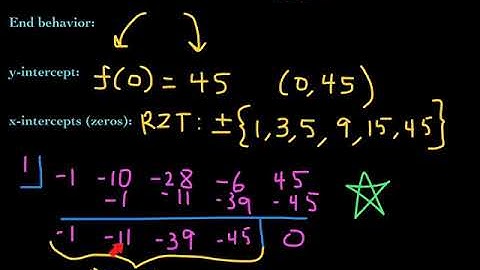 End behavior:
y-intercept: f(0) = 45 (0,45)
x-intercepts (zeros): RZT: ± {1,3,5, 9,15,45}
1 -1 -10 -28 -6 45
-1 -11 -39 -45
-1 -11 -39 -45 0